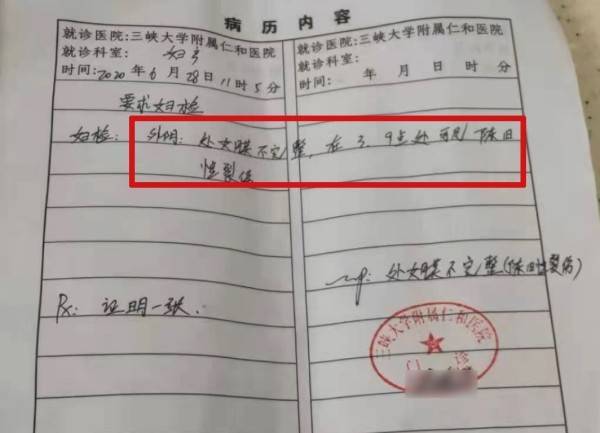 病历内容
就诊医院:三峡大学附属仁和医院
就诊科室: 妇科
时间:2020年6月28日11时5分
要求妇检
妇检: 外阴: 处女膜不完整, 在3、9点处可见陈旧
性裂伤
Rx: 证明一张.
就诊医院:三峡大学附属仁和医院
就诊科室:
时间: 年 月 日 时 分
imp: 处女膜不完整(陈旧性裂伤)
三峡大学附属仁和医院
门诊